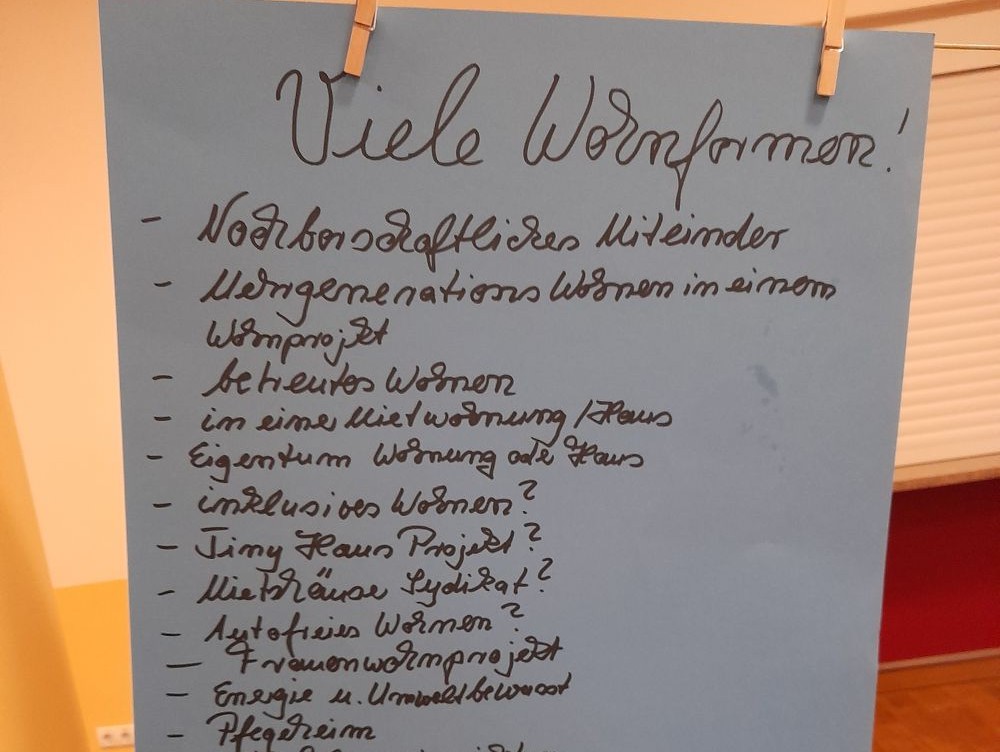 Viele Wohnformen!
- Nachbarschaftliches Miteinder
- Mehrgenerations Wohnen in einem
Wohnprojekt
- betreutes Wohnen
- in einer Mietwohnung / Haus
- Eigentum Wohnung oder Haus
- inklusives Wohnen?
- Tiny Haus Projekt?
- Mietshäuser Sydikat?
- Autofreies Wohnen?
- Frauenwohnprojekt
- Energie u. Umweltbewusst
- Pflegeheim